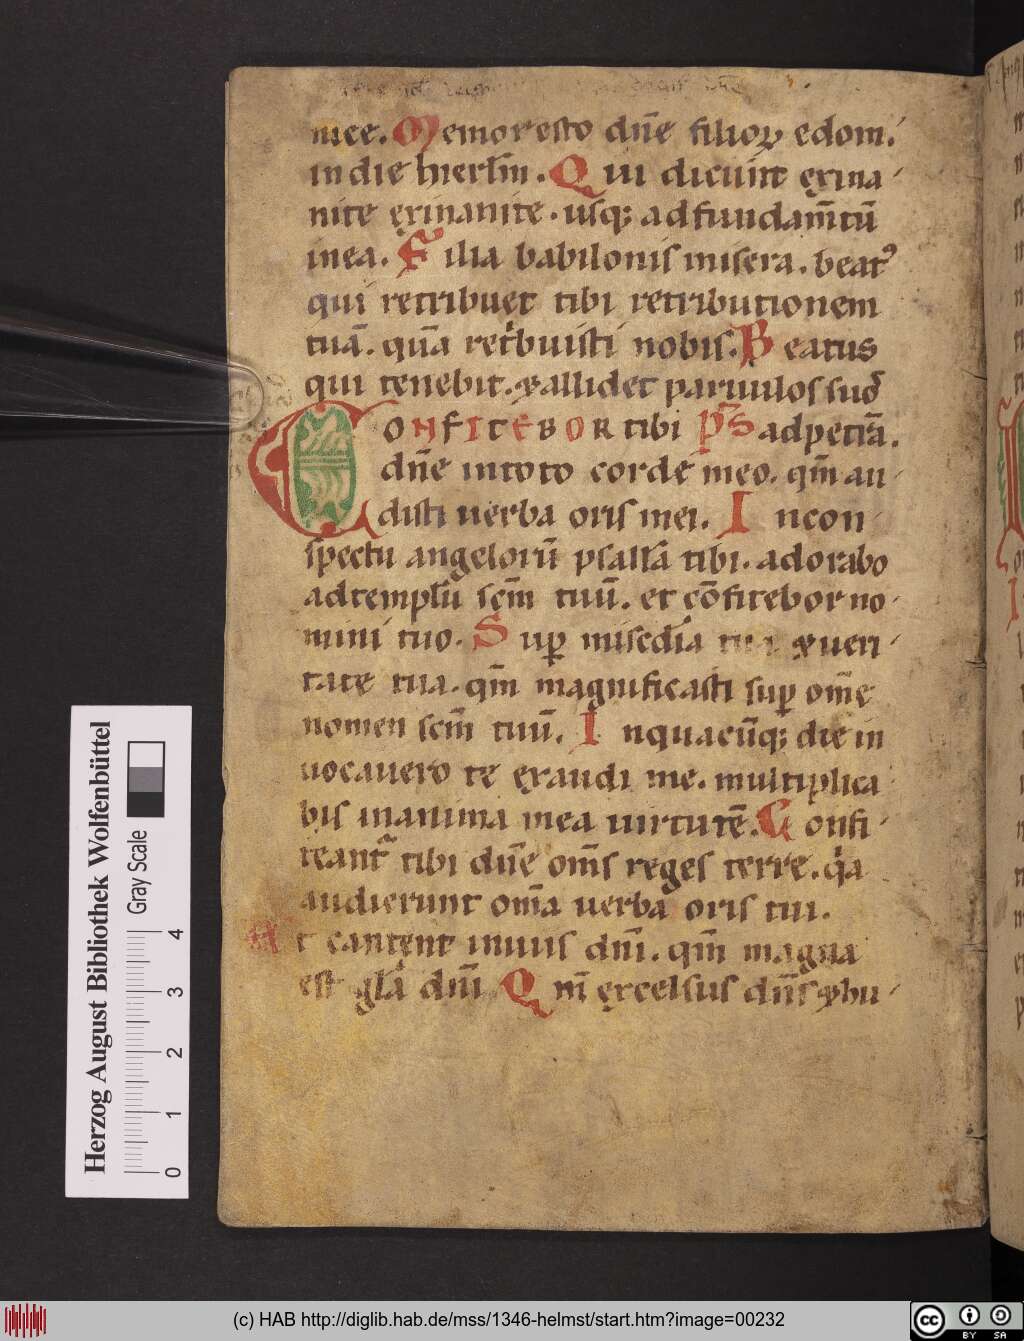 mee. Memor esto dn̄e filioꝝ edom.
in die hierl̄m. Qui dicunt exina
nite exinanite. usq; ad fundam̄tū
in ea. Filia babilonis misera. beat᾽
qui retribuet tibi retributionem
tuā. quā ret͛buisti nobis. Beatus
qui tenebit. ⁊ allidet paruulos suos
CONFITEBOR tibi P̄S ad petrā.
dn̄e in toto corde meo. qm̄ au
disti uerba oris mei. In con
spectu angelorū psallā tibi. adorabo
ad templū sc̄m tuū. et cōfitebor no
mini tuo. Sup̱ misc̄dia tua ⁊ ueri
tate tua. qm̄ magnificasti sup̱ om̄e
nomen sc̄m tuū. In quacūq; die in
uocauero te exaudi me. multiplica
bis in anima mea uirtutē. Confi
teant᷑ tibi dn̄e om̄s reges terre. qᷓa
audierunt om̄a uerba oris tui.
Et cantent in uiis dn̄i. qm̄ magna
est gl̄a dn̄i Qm̄ excelsus dn̄s ⁊ hu
Herzog August Bibliothek Wolfenbüttel
Gray Scale
0 1 2 3 4
(c) HAB http://diglib.hab.de/mss/1346-helmst/start.htm?image=00232
cc BY SA